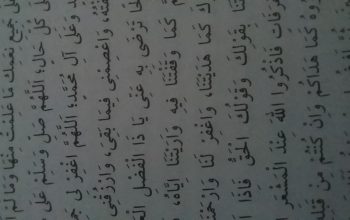 جميع نعمك ما علمت منها وما لم
كل حال، اللهم صل وسلم على
وَعَلَى آلِ مُحَمَّدٍ، اللَّهُمَّ اغْفِرْ لِى
وَاعْصِمْنِى فِيمَا بَقِىَ، وَارْزُقْنِى
تَرْضَى بِهِ عَنِّى يَا ذَا الْفَضْلِ
كَمَا وَقَفْتَنَا فِيهِ وَأَرَيْتَنَا إِيَّاهُ،
كَمَا هَدَيْتَنَا، وَاغْفِرْ لَنَا وَارْحَمْنَا
بِقَوْلِكَ وَقَوْلُكَ الْحَقُّ فَإِذَا
عَرَفَاتٍ فَاذْكُرُوا اللَّهَ عِنْدَ الْمَشْعَرِ
كَمَا هَدَاكُمْ وَإِنْ كُنْتُمْ مِنْ